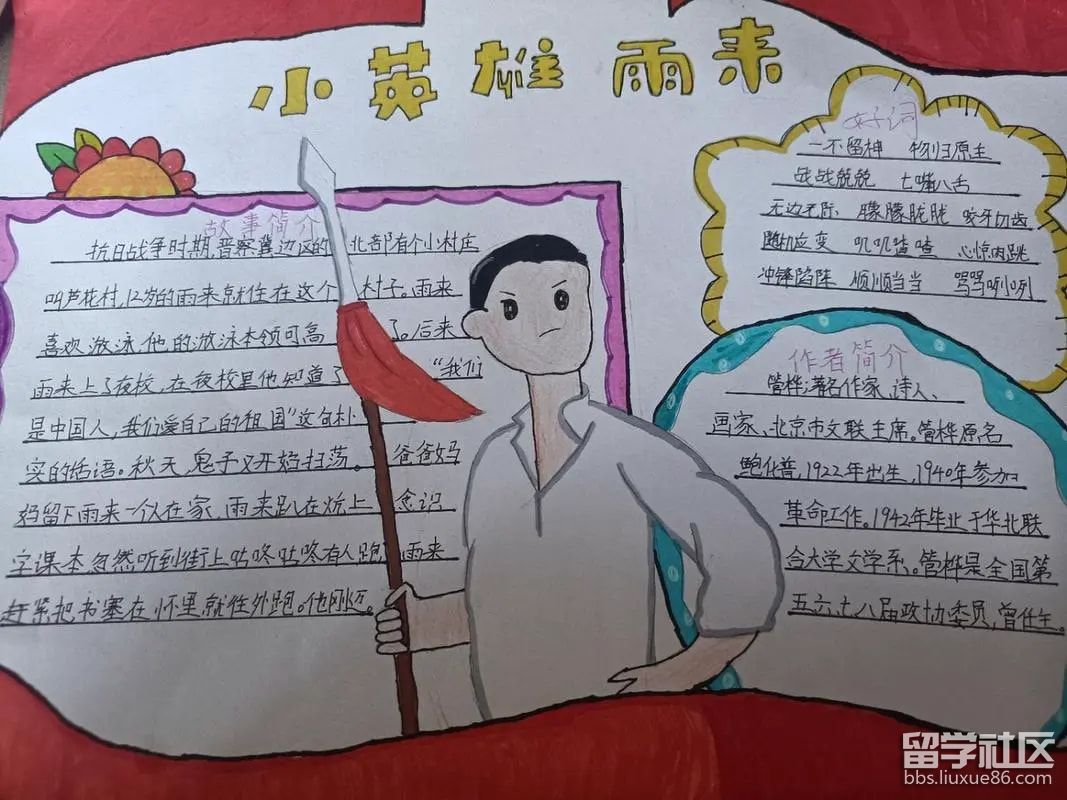 小英雄雨来
故事简介
抗日战争时期,晋察冀边区的北部有个小村庄
叫芦花村,12岁的雨来就住在这个村子。雨来
喜欢游泳,他的游泳本领可高了。后来
雨来上了夜校,在夜校里他知道了“我们
是中国人,我们爱自己的祖国”这句朴
实的话语。秋天,鬼子又开始扫荡。爸爸妈
妈留下雨来一个人在家,雨来趴在炕上念识
字课本,忽然听到街上咕咚咕咚有人跑,雨来
赶紧把书塞在怀里,就往外跑。他刚迈
好词
一不留神 物归原主
战战兢兢 七嘴八舌
无边无际 朦朦胧胧 咬牙切齿
随机应变 叽叽喳喳 心惊肉跳
冲锋陷阵 顺顺当当 骂骂咧咧
作者简介
管桦:著名作家、诗人、
画家、北京市文联主席。管桦原名
鲍化普,1922年出生,1940年参加
革命工作。1942年毕业于华北联
合大学文学系。管桦是全国第
五、六、七、八届政协委员,曾任
留学社区
bbs.liuxue86.com